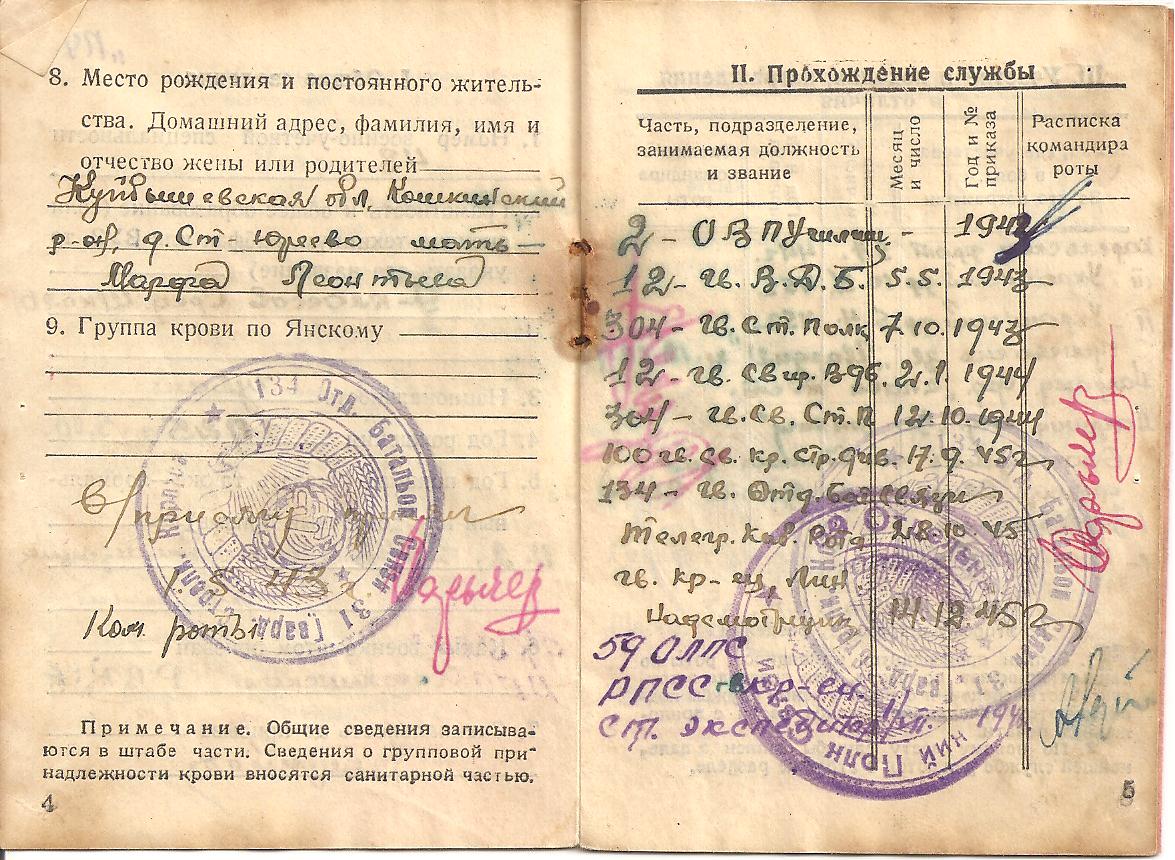 8. Место рождения и постоянного житель-
ства. Домашний адрес, фамилия, имя и
отчество жены или родителей
Куйбышевская обл, Кошкинский
р-он, д. Ст-Юреево мать-
Марфа Леонтьева
9. Группа крови по Янскому
134 Отд. Батальон Связи
31 Гвард.
В/присягу принял
1 5 43
Ком. роты
Примечание. Общие сведения записыва-
ются в штабе части. Сведения о групповой при-
надлежности крови вносятся санитарной частью.
4
II. Прохождение службы
Часть, подразделение,
занимаемая должность
и звание
Месяц
и число
Год и №
приказа
Расписка
командира
роты
2-ОВПУчилищ - 1942
12-гв. В.Д.Б. 5.5. 1943
304-гв. Ст. Полк 7.10. 1943
12-гв. Свир. ВДб. 2.1. 1944
304-гв. Св. Ст. П 12.10.1944
100 гв. Св. кр. Стр. див. 17.9. 45
134-гв. Отд. бат связи
Телегр. Каб. Рота 28.10. 45
гв. кр-ец, Лин
Надсмотрщик 14.12.45
59 ОЛПС
РПСС кр-ец.
Ст. 194
31 Гвард.
Полк
5